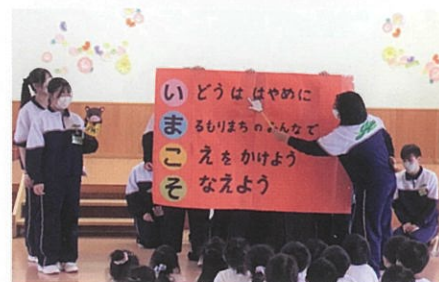 い どうは はやめに
ま るもりまちのみんなで
こ えをかけよう
そ なえよう